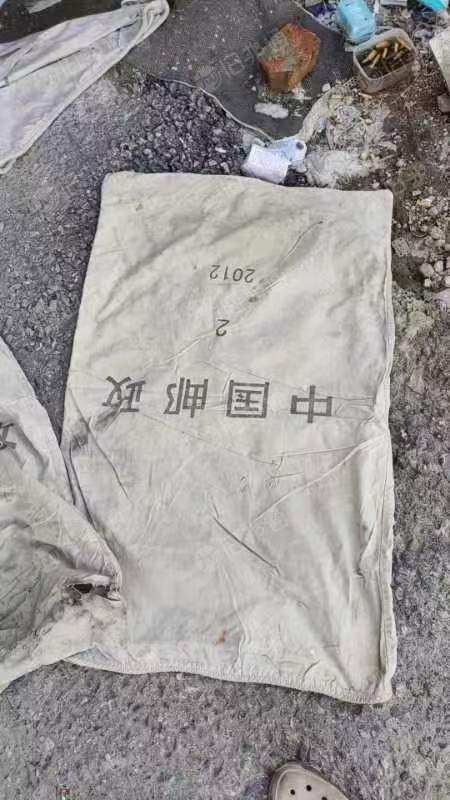 中国邮政
2
2012